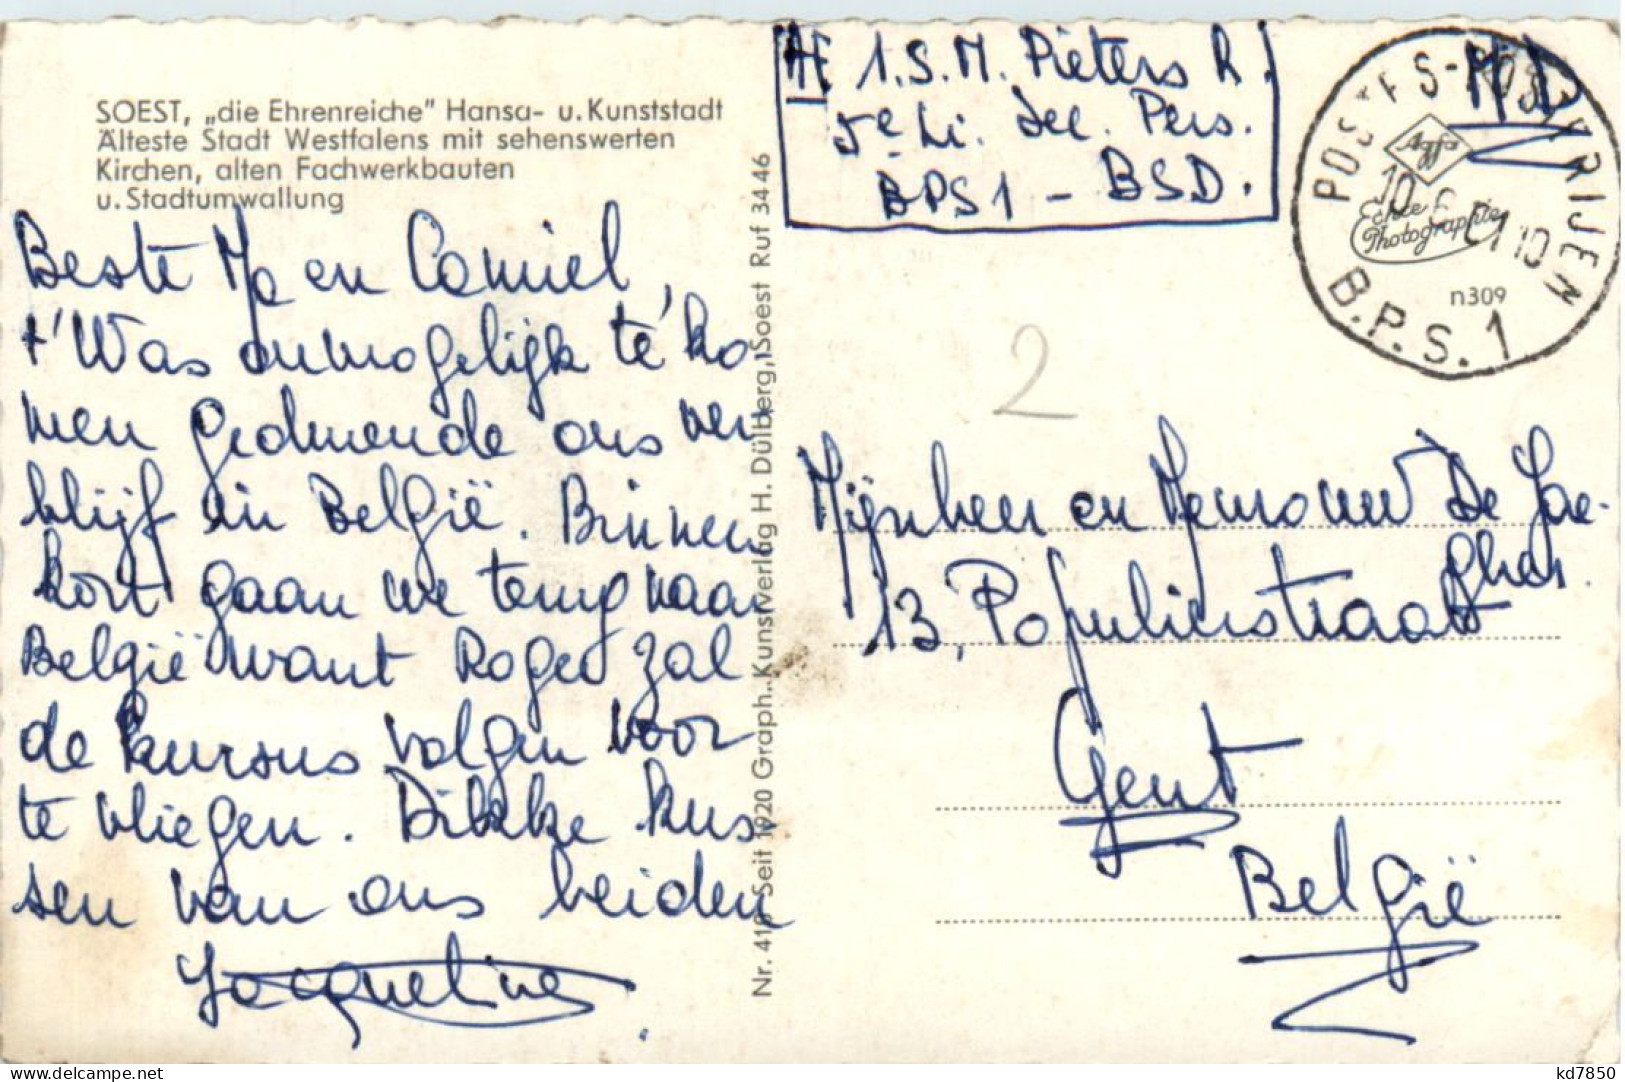 SOEST, „die Ehrenreiche" Hansa- u. Kunststadt
Älteste Stadt Westfalens mit sehenswerten
Kirchen, alten Fachwerkbauten
u. Stadtumwallung
Beste Ma en Camiel,
t'Was onmogelijk te ko
men gedurende ons ver
blijf in België. Binnen
kort gaan we terug naar
België want Roger zal
de kursus volgen voor
te vliegen. Dikke kus
sen van ons beiden
Jacqueline
Nr. 41 Seit 1920 Graph. Kunstverlag H. Dülberg, Soest Ruf 3446
1.S.M. Pieters R.
5e Li. Dec. Pers.
BPS1 - BSD.
MD
POSTES-POSTERIJEN
B.P.S. 1
10
Agfa
Echte
Photographie
n309
2
Mijnheer en Mevrouw De Jae-
gher.
13, Populierstraat
Gent
België
kd7850